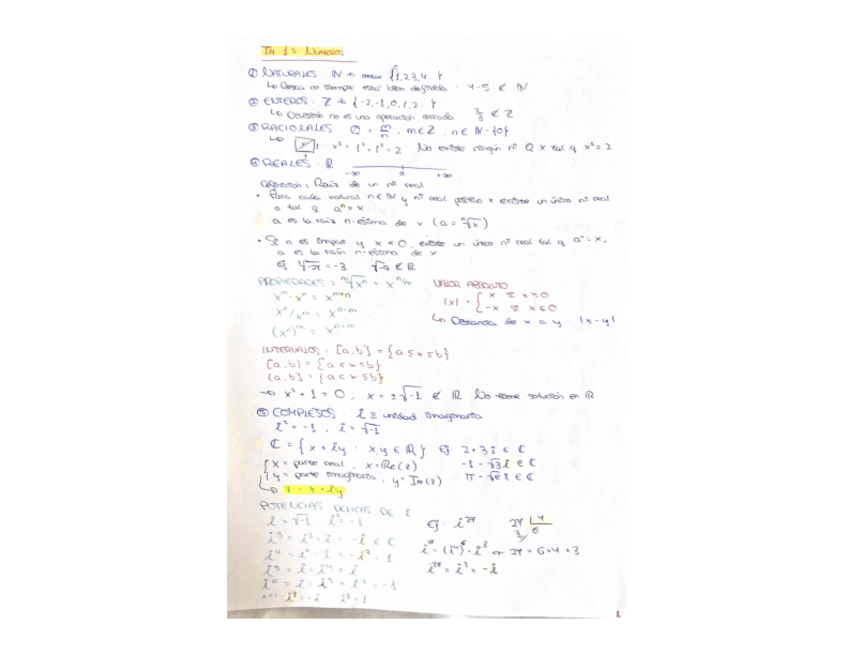 Tm 1: Números
① NATURALES: ℕ → {1,2,3,4...}
↳ Resta no siempre está bien definida: 4-5 ∉ ℕ
② ENTEROS: Z → {-2,-1,0,1,2...}
↳ División no es una operación cerrada 2/3 ∉ Z
③ RACIONALES: Q = m/n, m∈Z, n∈ℕ-{0}
↳ x² = 1²+1² = 2 No existe ningún nº Q x tal q x²=2
④ REALES: ℝ
-∞ 0 +∞
Definición: Raíz de un nº real
• Para cada natural n∈ℕ y nº real positivo x existe un único nº real
a tal q aⁿ = x
a es la raíz n-ésima de x (a = ⁿ√x)
• Si n es impar y x<0, existe un único nº real tal q aⁿ=x,
a es la raíz n-ésima de x
Ej ∛-27 = -3 ∉ ℝ
PROPIEDADES: ᵐ√xⁿ = xⁿ/ᵐ
xᵐ · xⁿ = xᵐ⁺ⁿ
xⁿ/xᵐ = xⁿ⁻ᵐ
(xⁿ)ᵐ = xⁿ·ᵐ
VALOR ABSOLUTO
|x| = { x si x≥0
-x si x≤0
↳ Distancia de x a y: |x-y|
INTERVALOS: [a,b] = {a≤x≤b}
[a,b) = {a≤x<b}
(a,b] = {a<x≤b}
→ x²+1=0, x=±√-1 ∉ ℝ No tiene solución en ℝ
⑤ COMPLEJOS: i ≡ unidad imaginaria
i² = -1, i = √-1
ℂ = {x+iy : x,y ∈ ℝ} Ej 2+3i ∈ ℂ
-1-√3i ∈ ℂ
π-√e i ∈ ℂ
x = parte real, x = Re(z)
y = parte imaginaria, y = Im(z)
z = x+iy
POTENCIAS DE i
i = √-1 i² = -1
i³ = i²·i = -i ∈ ℂ
i⁴ = i³·i = -i² = 1
i⁵ = i·i⁴ = i
i⁶ = i·i⁵ = i² = -1
... i⁷ = -i i⁸ = 1
Ej: i²⁷ 27 |4
3 6
i²⁷ = (i⁴)⁶·i³ → 27 = 6·4+3
i²⁷ = i³ = -i
1